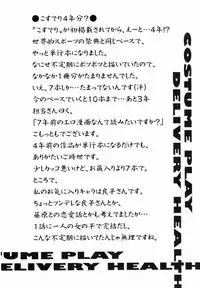 ●こすでり4年分?●
“こすでり”が初掲載されてから、えーと…4年!?
世界的スポーツの祭典と同じペースで、
やっと単行本になりました。
なにせ不定期にポツポツと描いていたので、
なかなか1冊分がたまりませんでした。
いえ、7本しか…たまってないんです(汗)
今のペースでいくと10本まで…あと3年
担当さん曰く、
「7年前のエロ漫画なんて読みたいですか?」
こもっともでございます。
4年前の作品が単行本になるだけでも、
ありがたいご時世です。
少しカッコ悪いけど、お蔵入りより7本で。
ところで、
私のお気に入りキャラは良子さんです。
ちょっとツンデレな良子さんだから、
藤原との恋愛話とかも考えてましたが…
1話に一人の女の子で完結だし、
こんな不定期に描いてたんじゃ無理ですね。
COSTUME PLAY
DELIVERY HEALTH
UME PLAY
ELIVERY HEALTH